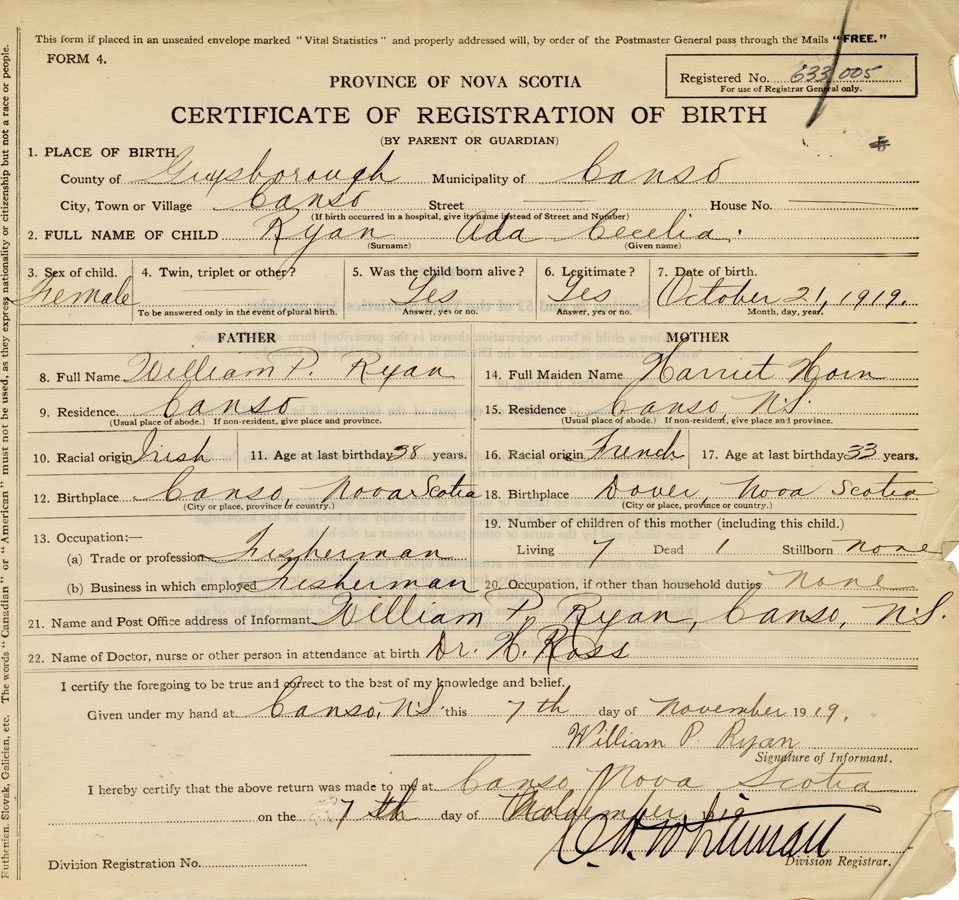 This form if placed in an unsealed envelope marked "Vital Statistics" and properly addressed will, by order of the Postmaster General pass through the Mails "FREE."
FORM 4.
Registered No. 633005
For use of Registrar General only.
PROVINCE OF NOVA SCOTIA
CERTIFICATE OF REGISTRATION OF BIRTH
(BY PARENT OR GUARDIAN)
1. PLACE OF BIRTH
County of Guysborough Municipality of Canso
City, Town or Village Canso Street House No.
(If birth occurred in a hospital, give its name instead of Street and Number)
2. FULL NAME OF CHILD Ryan Ada Cecelia
(Surname) (Given name)
3. Sex of child. 4. Twin, triplet or other? 5. Was the child born alive? 6. Legitimate? 7. Date of birth.
Female Yes Yes October 21, 1919.
To be answered only in the event of plural birth. Answer, yes or no. Answer, yes or no. Month, day, year.
FATHER MOTHER
8. Full Name William P. Ryan 14. Full Maiden Name Harriet Horn
9. Residence. Canso 15. Residence Canso, N.S.
(Usual place of abode.) If non-resident, give place and province. (Usual place of abode.) If non-resident, give place and province.
10. Racial origin Irish 11. Age at last birthday 38 years. 16. Racial origin French 17. Age at last birthday 33 years.
12. Birthplace Canso, Nova Scotia 18. Birthplace Dover, Nova Scotia
(City or place, province or country.) (City or place, province or country.)
13. Occupation:— 19. Number of children of this mother (including this child.)
(a) Trade or profession Fisherman Living 7 Dead 1 Stillborn none
(b) Business in which employed Fisherman 20. Occupation, if other than household duties none
21. Name and Post Office address of Informant William P. Ryan, Canso, N.S.
22. Name of Doctor, nurse or other person in attendance at birth Dr. H. Ross
I certify the foregoing to be true and correct to the best of my knowledge and belief.
Given under my hand at Canso, N.S. this 7th day of November 1919.
William P Ryan
Signature of Informant.
I hereby certify that the above return was made to me at Canso, Nova Scotia
on the 7th day of November 1919
Division Registration No. Division Registrar.
Ruthenian, Slovak, Galician, etc. The words "Canadian" or "American" must not be used, as they express nationality or citizenship but not a race or people.